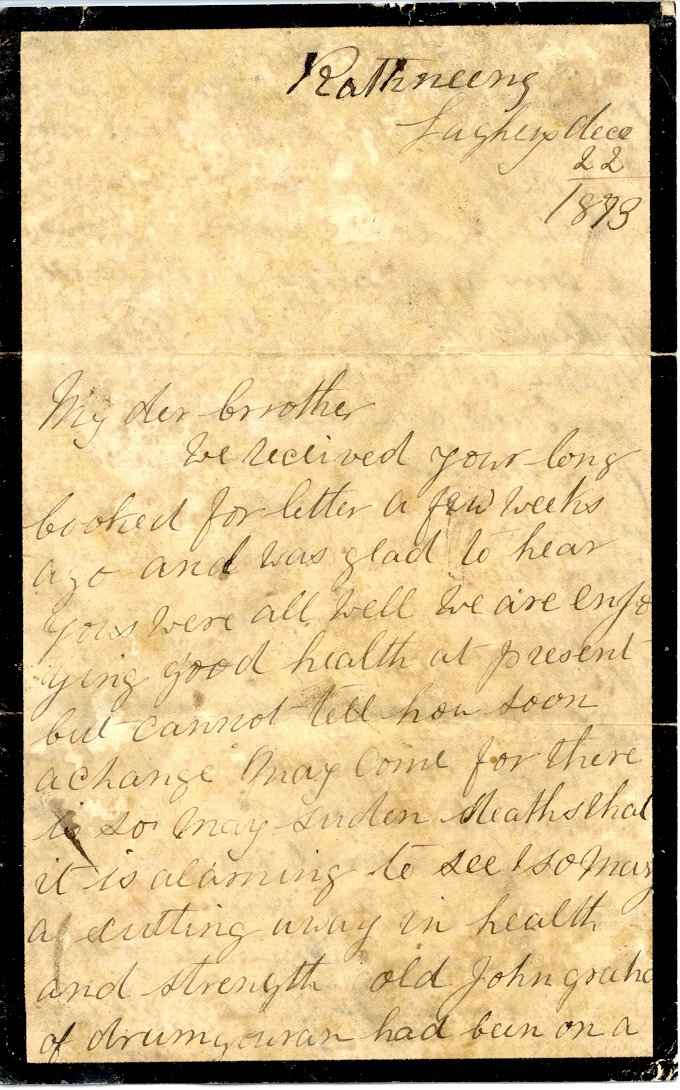 Rathneeny
Laghey dece
22
1873
My der brrother
We received your long
booked for letter a few weeks
ago and was glad to hear
yous were all well we are enjo
ying good health at present
but cannot tell how soon
a change may come for there
is so may suden deaths that
it is alarming to see so may
a cutting away in health
and strength old John graha
of drumgowran had been on a